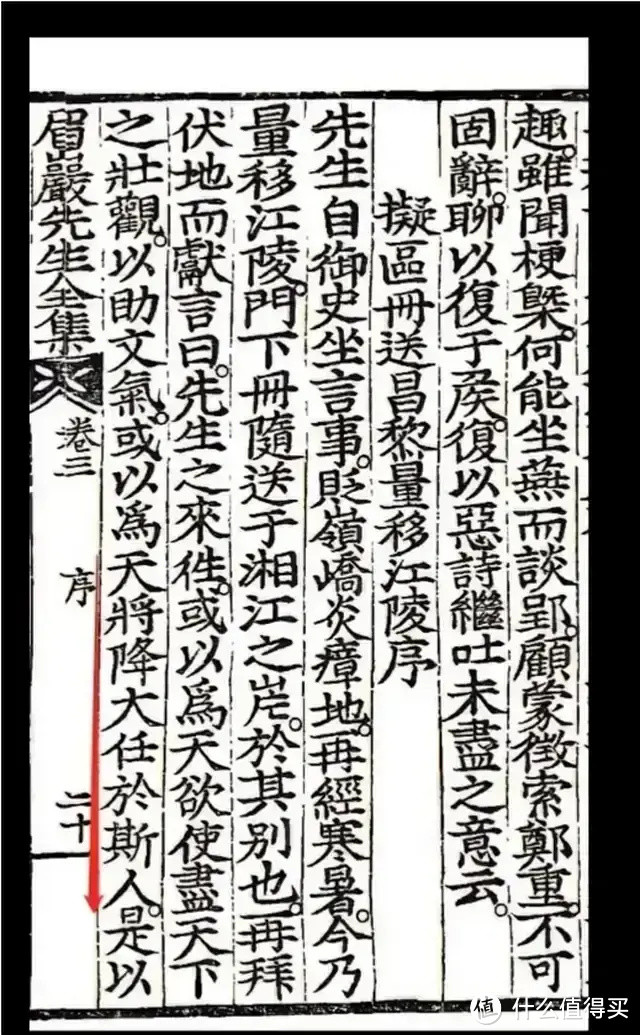 趣。雖聞梗槩。何能坐蕪而談郢。顧蒙徵索鄭重。不可
固辭。聊以復于矦。復以惡詩繼吐未盡之意云。
擬區冊送昌黎量移江陵序
先生自御史坐言事。貶嶺嶠炎瘴地。再經寒暑。今乃
量移江陵。門下冊隨送于湘江之岸。於其別也。再拜
伏地而獻言曰。先生之來徃。或以爲天欲使盡天下
之壯觀。以助文氣。或以爲天將降大任於斯人。是以
眉巖先生全集 卷三 序 二十
值 什么值得买